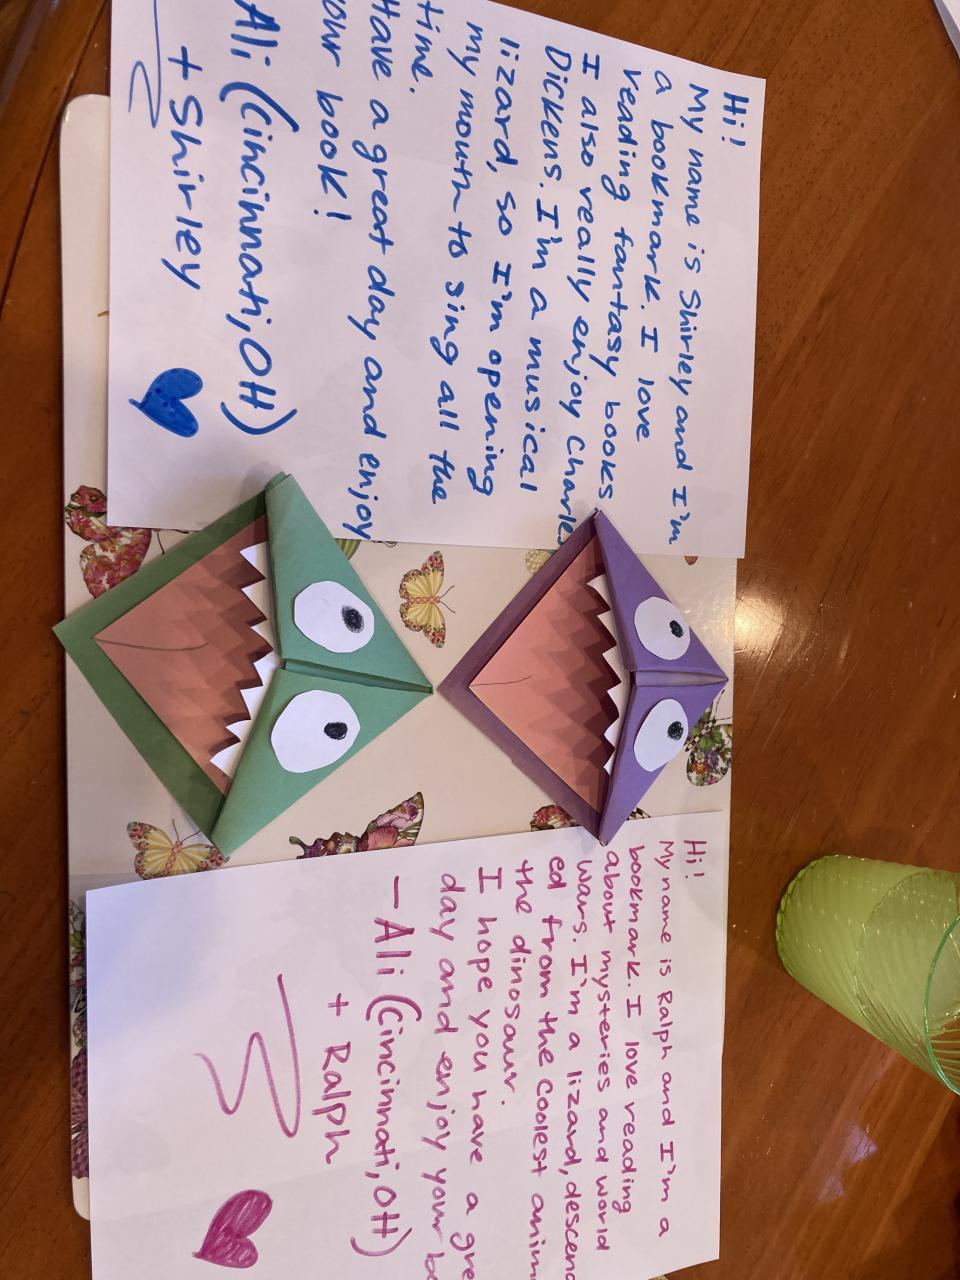 Hi!
My name is Shirley and I'm
a bookmark. I love
reading fantasy books
I also really enjoy Charles
Dickens. I'm a musical
lizard, so I'm opening
my mouth to sing all the
time.
Have a great day and enjoy
your book!
Ali (Cincinnati, OH)
+ Shirley
Hi!
My name is Ralph and I'm a
bookmark. I love reading
about mysteries and world
wars. I'm a lizard, descend
ed from the coolest anim
the dinosaur.
I hope you have a gre
day and enjoy your bo
- Ali (Cincinnati, OH)
+ Ralph